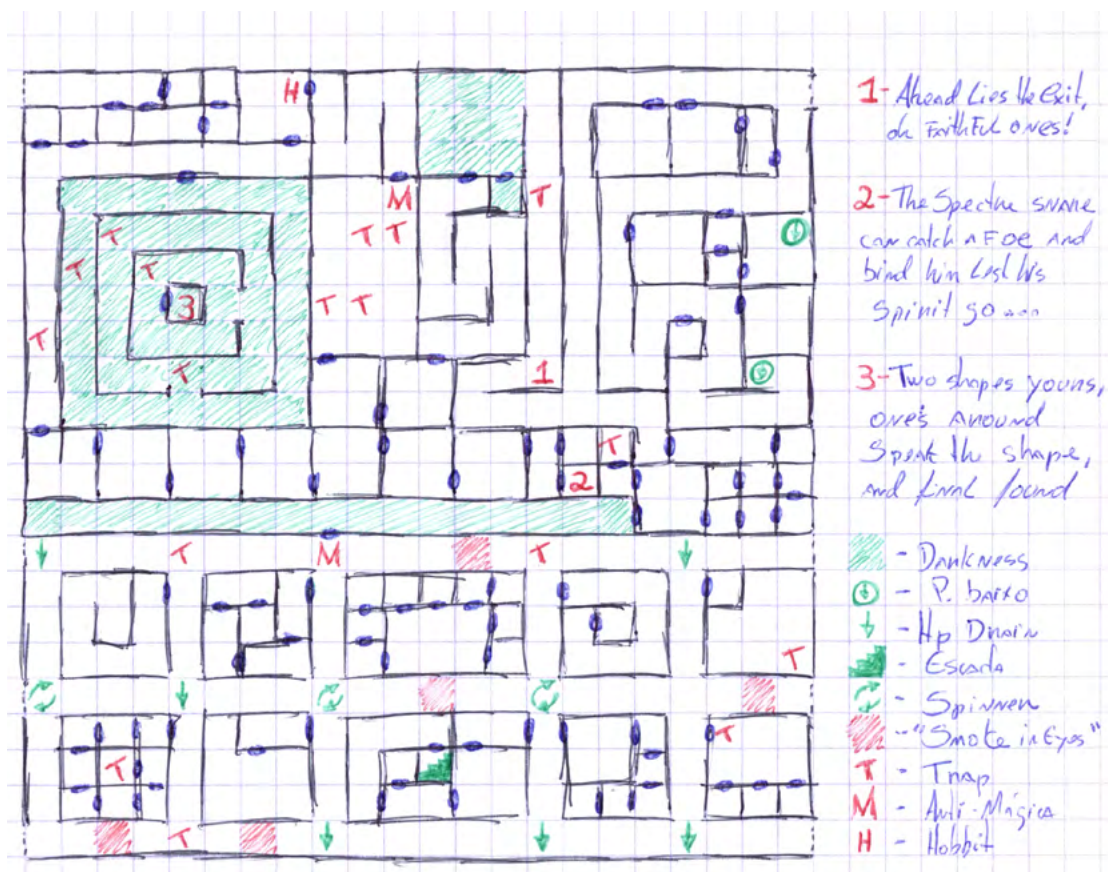 H
M
T
T T
T
T
T
3
T T
T
T
1
T
2
T
M
T
T
T
T
T
1- Ahead Lies the Exit,
oh Faithful ones!
2- The Spectre snare
can catch a FOE and
bind him lest his
Spirit go ...
3- Two shapes yours,
one's around
Speak the shape,
and final found
- Darkness
- P. baixo
- Hp Drain
- Escada
- Spinner
- "Smoke in Eyes"
T - Trap
M - Anti-Mágica
H - Hobbit